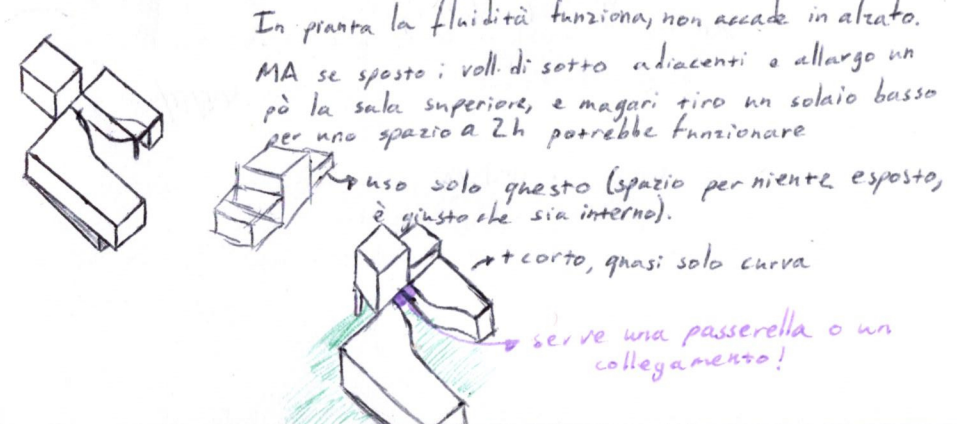 In pianta la fluidità funziona, non accade in alzato.
MA se sposto i voll. di sotto adiacenti e allargo un
pò la sala superiore, e magari tiro un solaio basso
per uno spazio a 2h potrebbe funzionare
uso solo questo (spazio per niente esposto,
è giusto che sia interno).
+ corto, quasi solo curva
serve una passerella o un
collegamento!